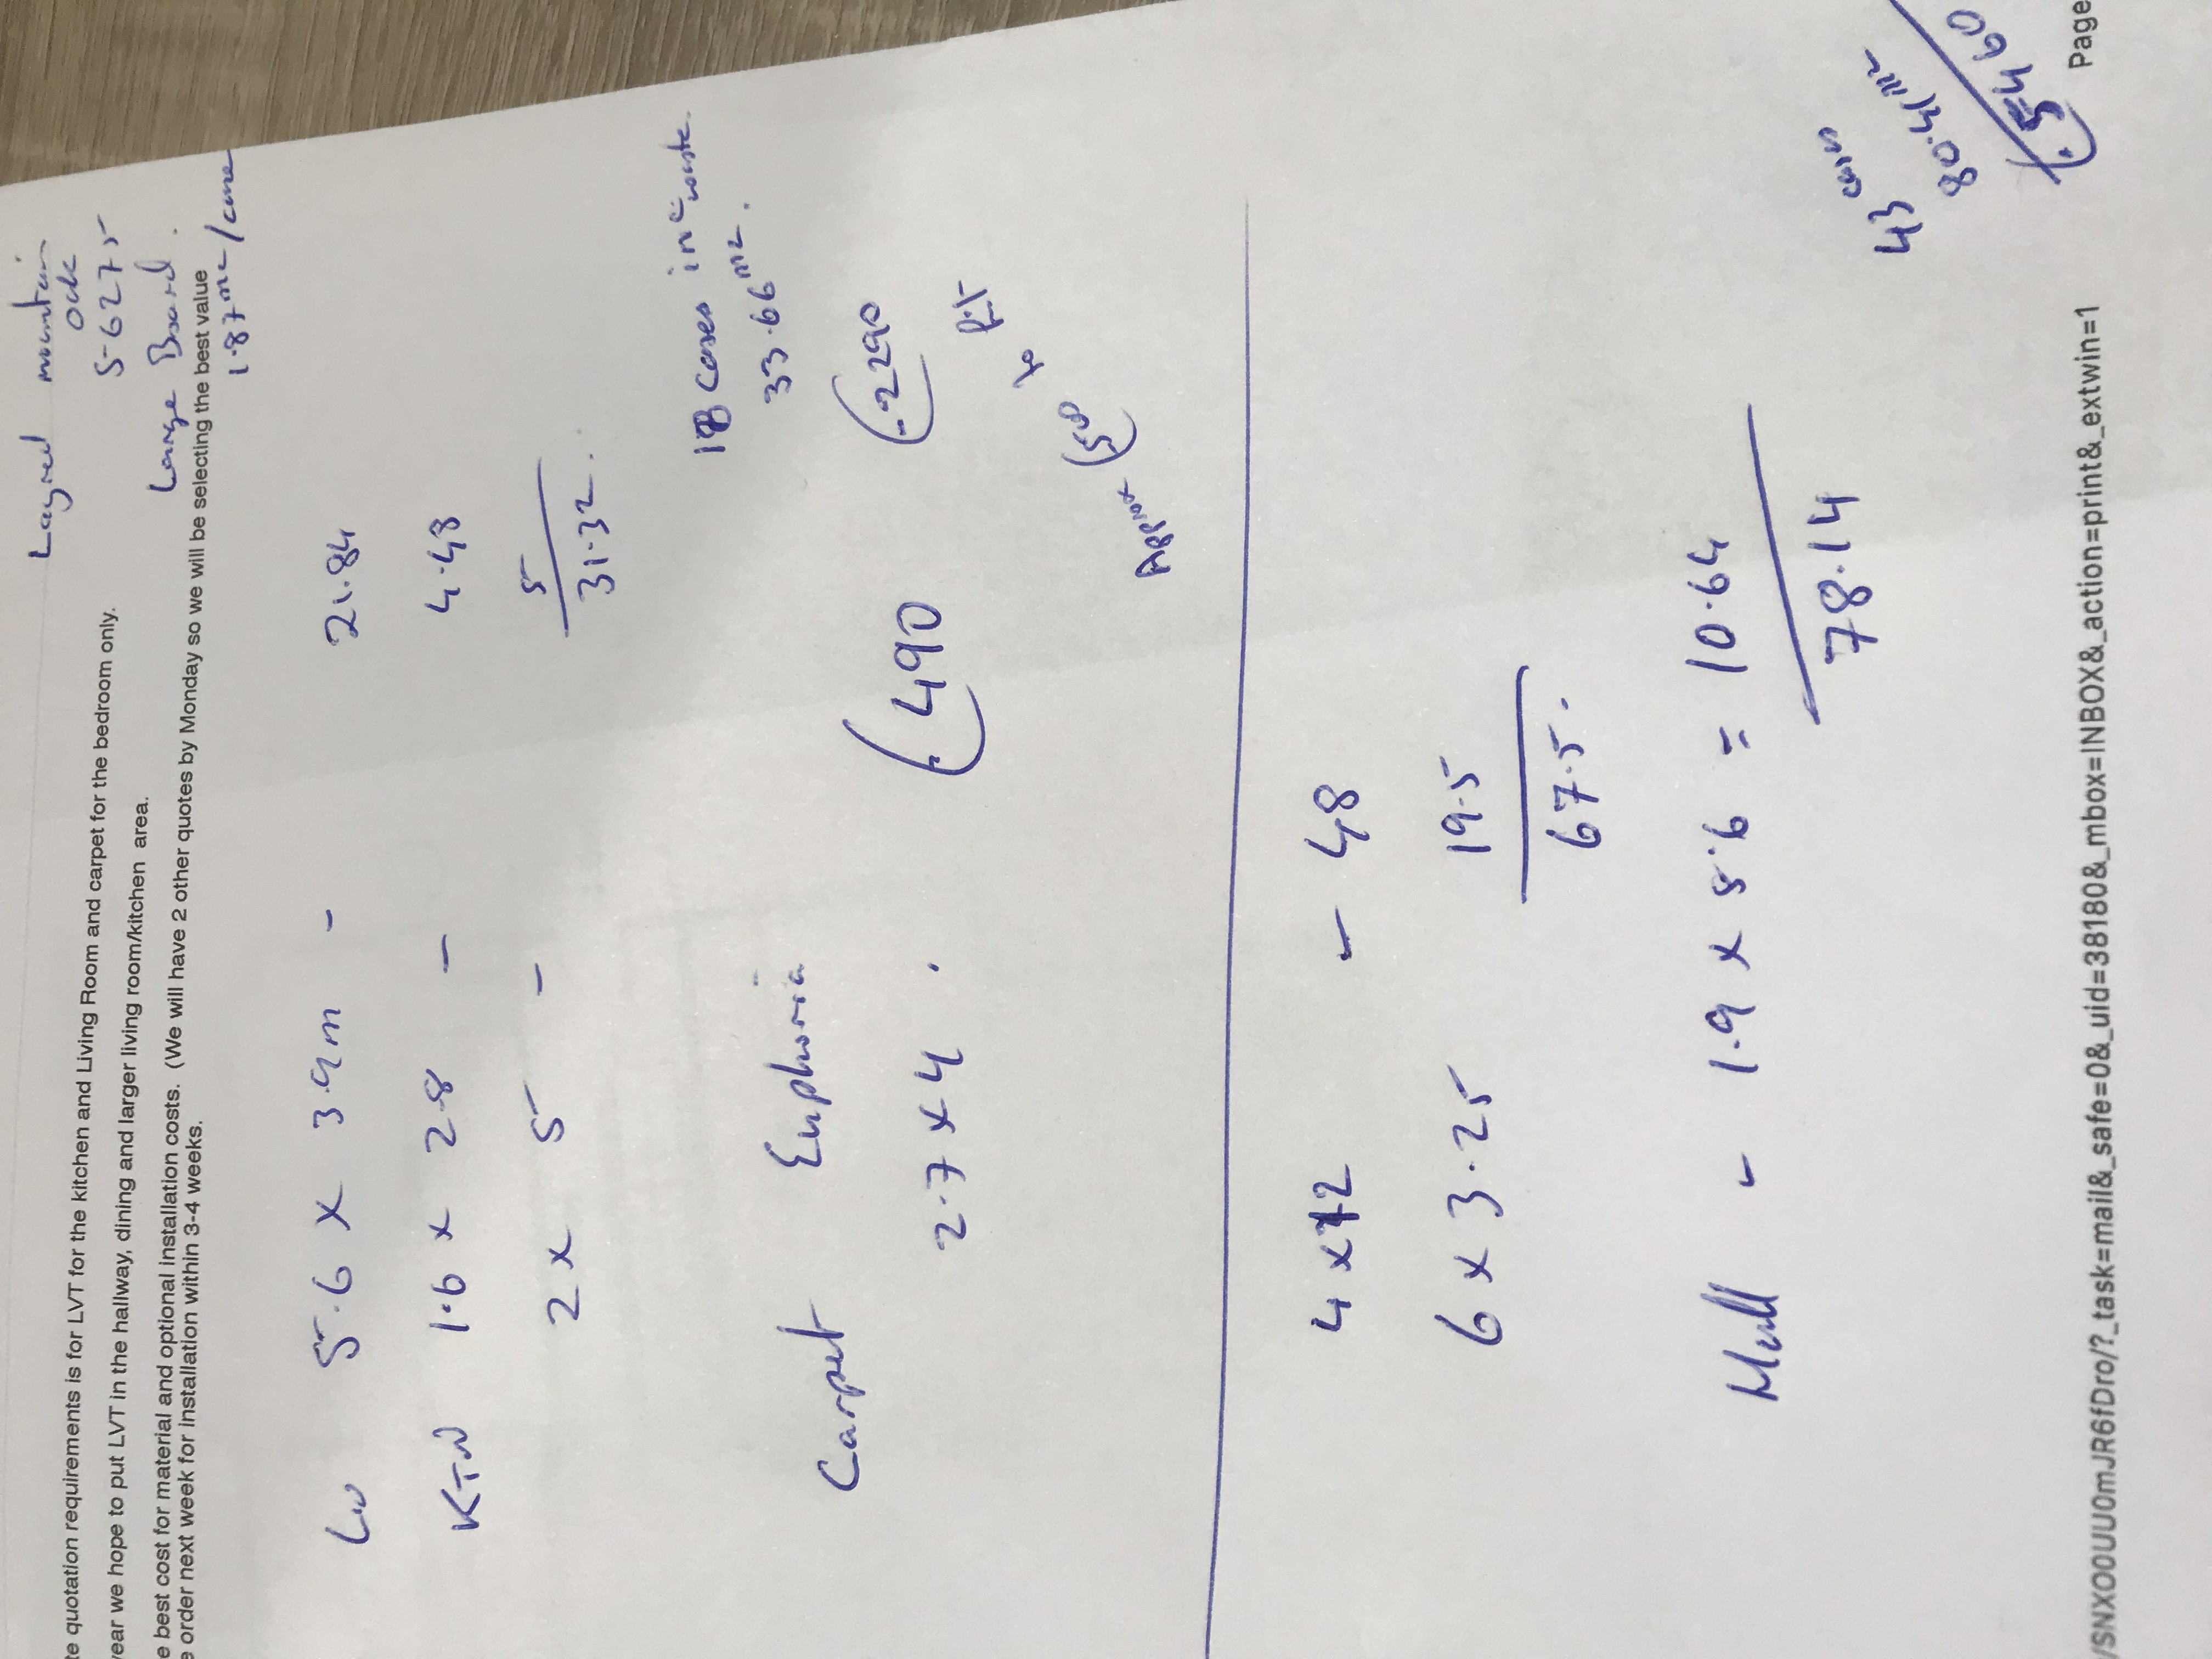 Layred mountain
Oak
5-6275
Large Board.
1.87m2/case
te quotation requirements is for LVT for the kitchen and Living Room and carpet for the bedroom only.
year we hope to put LVT in the hallway, dining and larger living room/kitchen area.
e best cost for material and optional installation costs. (We will have 2 other quotes by Monday so we will be selecting the best value
e order next week for installation within 3-4 weeks.
5.6 x 3.9m - 21.84
KTN 1.6 x 2.8 - 4.48
2 x 5 - 5
31.32.
18 Cases inc waste
33.66m2.
Carpet Euphoria
2.7 x 4. (490
(.2290
Approx (50 to fit
4 x 12 - 48
6 x 3.25 19.5
67.5.
Hall - 1.9 x 5.6 = 10.64
78.14
43 cases
80.41m2
(.5460
/SNXO0UU0mJR6fDro/?_task=mail&_safe=0&_uid=38180&_mbox=INBOX&_action=print&_extwin=1
Page